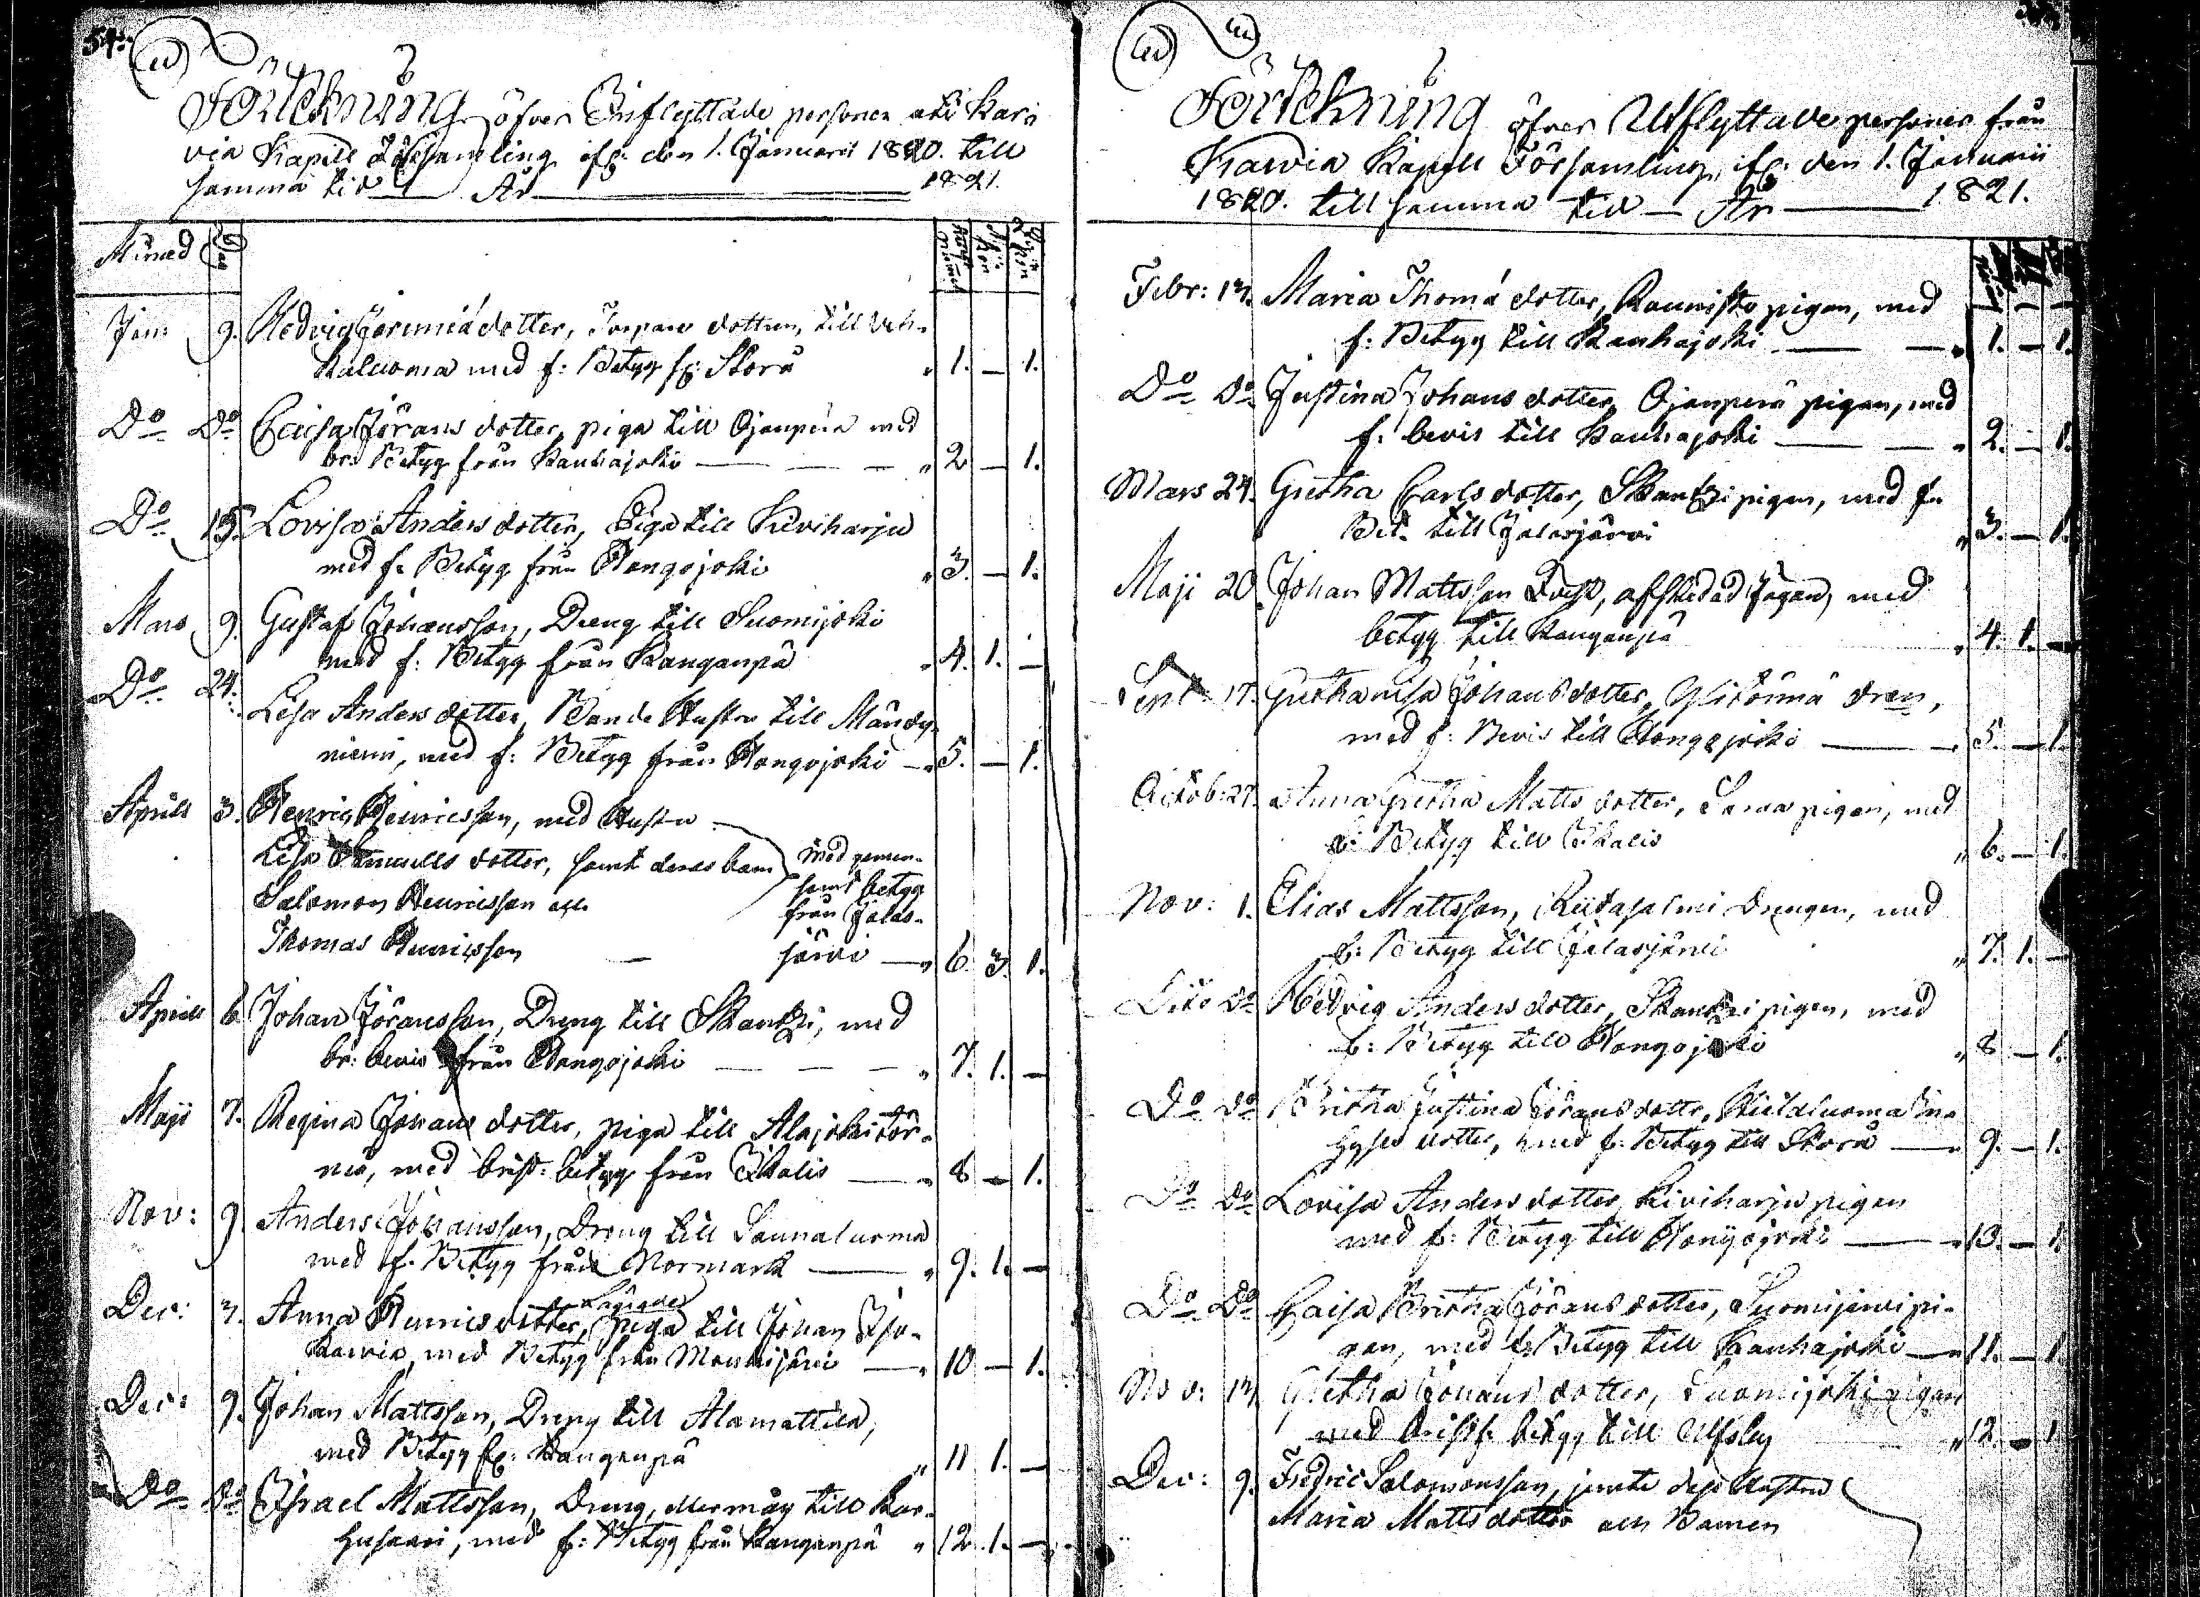 54.
Förtekning öfver Inflyttade personer uti Kar-
via Kapell Församling ifr: den 1. Januarii 1820. till
samma tid År 1821.
Månad Dag
Jan: 9. Hedvig Jeremiæ dotter, dottren, till
Kaluoma med f: Betyg fr: Storå " 1. — 1.
Do Do Caisa Jörans dotter, piga till Ojanperä med
br: Betyg från Kauhajoki " 2 — 1.
Do 15. Lovisa Anders dotter, Piga till Kiviharju
med f. Betyg från Hongojoki " 3. — 1.
Mars 9. Gustaf Johansson, Dreng till Suomijoki
med f: Betyg från Kanganpä " 4. 1. —
Do 24. Lisa Anders dotter, Bonde Hustru till Mändy-
niemi, med f: Betyg från Hongojoki — " 5. — 1.
Aprill 3. Henric Henricsson, med Hustru
Lisa Samuells dotter, samt deras barn med gemen-
Salomon Henricsson och samt betyg
Thomas Henricsson från Jalas-
järvi — " 6. 3. 1.
Aprill 6 Johan Jöransson, Dreng till Skantzi, med
br: bevis från Hongojoki " 7. 1. —
Maji 7. Regina Johans dotter, piga till Alajokitör-
mä, med brist: betyg från Ikalis — " 8 — 1.
Nov: 9. Anders Johansson, Dreng till Saunaluoma
med f. Betyg från Normark — " 9. 1. —
Dec: 3. Anna Henrics dotter, piga till Johan Iso-
karvia, med Betyg från Mouhijärvi — " 10 — 1.
Dec: 9. Johan Mattsson, Dreng till Alamattila,
med Betyg fr: Kanganpä " 11 1. —
Do Do Israel Mattsson, Dreng, eller måg till Kar-
husaari, med f: Betyg från Kanganpä " 12. 1. —
Förtekning öfver Utflyttade personer från
Karvia Kapell Församling, ifr: den 1. Januarii
1820. till samma tid — År 1821.
Febr: 13. Maria Thomæ dotter, Raunisto pigan, med
f: Betyg till Kauhajoki — " 1. — 1.
Do Do Justina Johans dotter, Ojanperä pigan, med
f. bevis till Kauhajoki — " 2. — 1.
Mars 24. Gretha Carls dotter, Skantzi pigan, med f.
Bet. till Jalasjärvi " 3. — 1.
Maji 20 Johan Mattsson Qvist, afskedad Jägare, med
betyg till Kanganpä " 4. 1. —
Sept 17. Gretha Lisa Johans dotter,
med f: Bevis till Hongojoki — " 5. — 1.
Octob: 27. Anna Gretha Matts dotter, Sarva pigan, med
f: Betyg till Ikalis " 6. — 1.
Nov: 1. Elias Mattsson, Riitasalmi Drengen, med
f: Betyg till Jalasjärvi " 7. 1. —
Dito Do Hedvig Anders dotter, Skantzi pigan, med
f: Betyg till Hongojoki " 8 — 1.
Do Do Britha Justina Jörans dotter, In-
hyses dotter, med f: Betyg till Storå — " 9. — 1.
Do Do Lovisa Anders dotter, Kiviharju pigan
med f: Betyg till Hongojoki — " 10. — 1.
Do Do Caisa Britha Jörans dotter, Suomijärvi pi-
gan, med f: Betyg till Kauhajoki — " 11. — 1
Nov: 13 Gretha Johans dotter, Suomijoki pigan
med bristf. betyg till Ulfsby " 12 — 1
Dec: 9. Fredric Salomonsson, jemte dess Hustru
Maria Matts dotter och Barnen